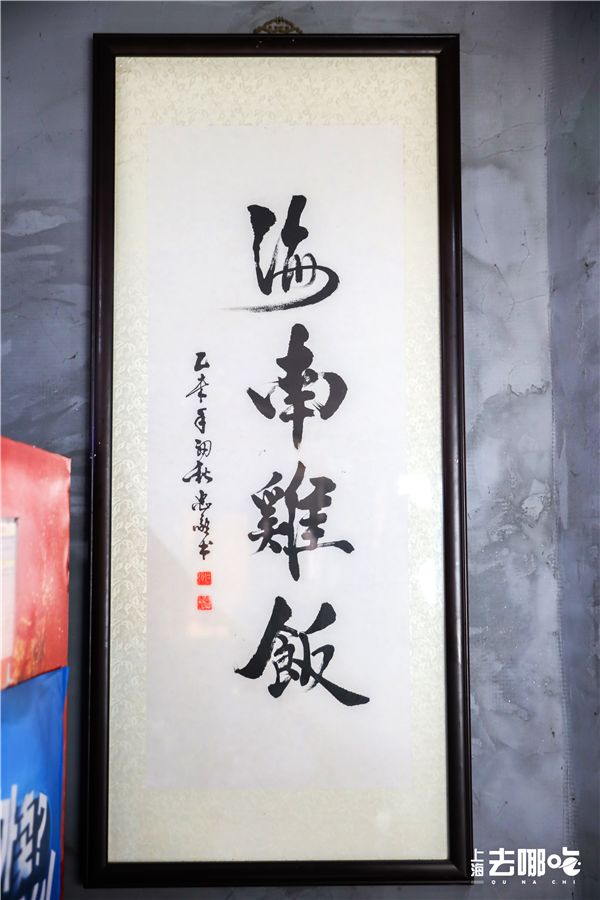 海南雞飯
乙未年初秋
上海
去哪吃
QU NA CHI